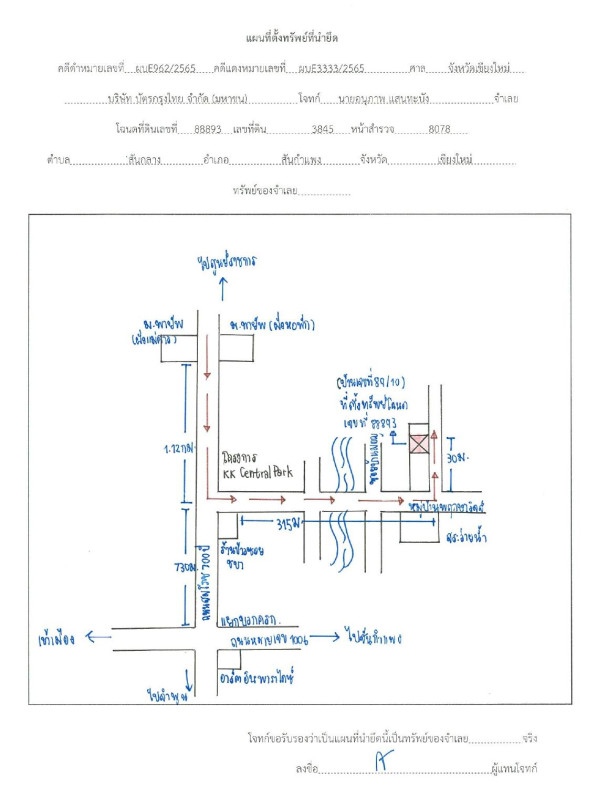 แผนที่ตั้งทรัพย์ที่นำยึด
คดีดำหมายเลขที่ ผบE962/2565 คดีแดงหมายเลขที่ ผบE3333/2565 ศาล จังหวัดเชียงใหม่
บริษัท บัตรกรุงไทย จำกัด (มหาชน) โจทก์ นายอนุภาพ แสนทะบัง จำเลย
โฉนดที่ดินเลขที่ 88893 เลขที่ดิน 3845 หน้าสำรวจ 8078
ตำบล สันกลาง อำเภอ สันกำแพง จังหวัด เชียงใหม่
ทรัพย์ของจำเลย
ไปศูนย์ราชการ
ม.พายัพ
ม.พายัพ (ฝั่งหอพัก)
(บ้านเลขที่ 89/10)
ที่ตั้งทรัพย์โฉนด
เลขที่ 88893
1.12 กม.
โครงการ
KK Central Park
30 ม.
315 ม.
สระว่ายน้ำ
730 ม.
ถนนสมโภช 700 ปี
ถนนหมายเลข 1006
เข้าเมือง
ไปสันกำแพง
ไปลำพูน
โจทก์ขอรับรองว่าเป็นแผนที่นำยึดนี้เป็นทรัพย์ของจำเลย จริง
ลงชื่อ ผู้แทนโจทก์